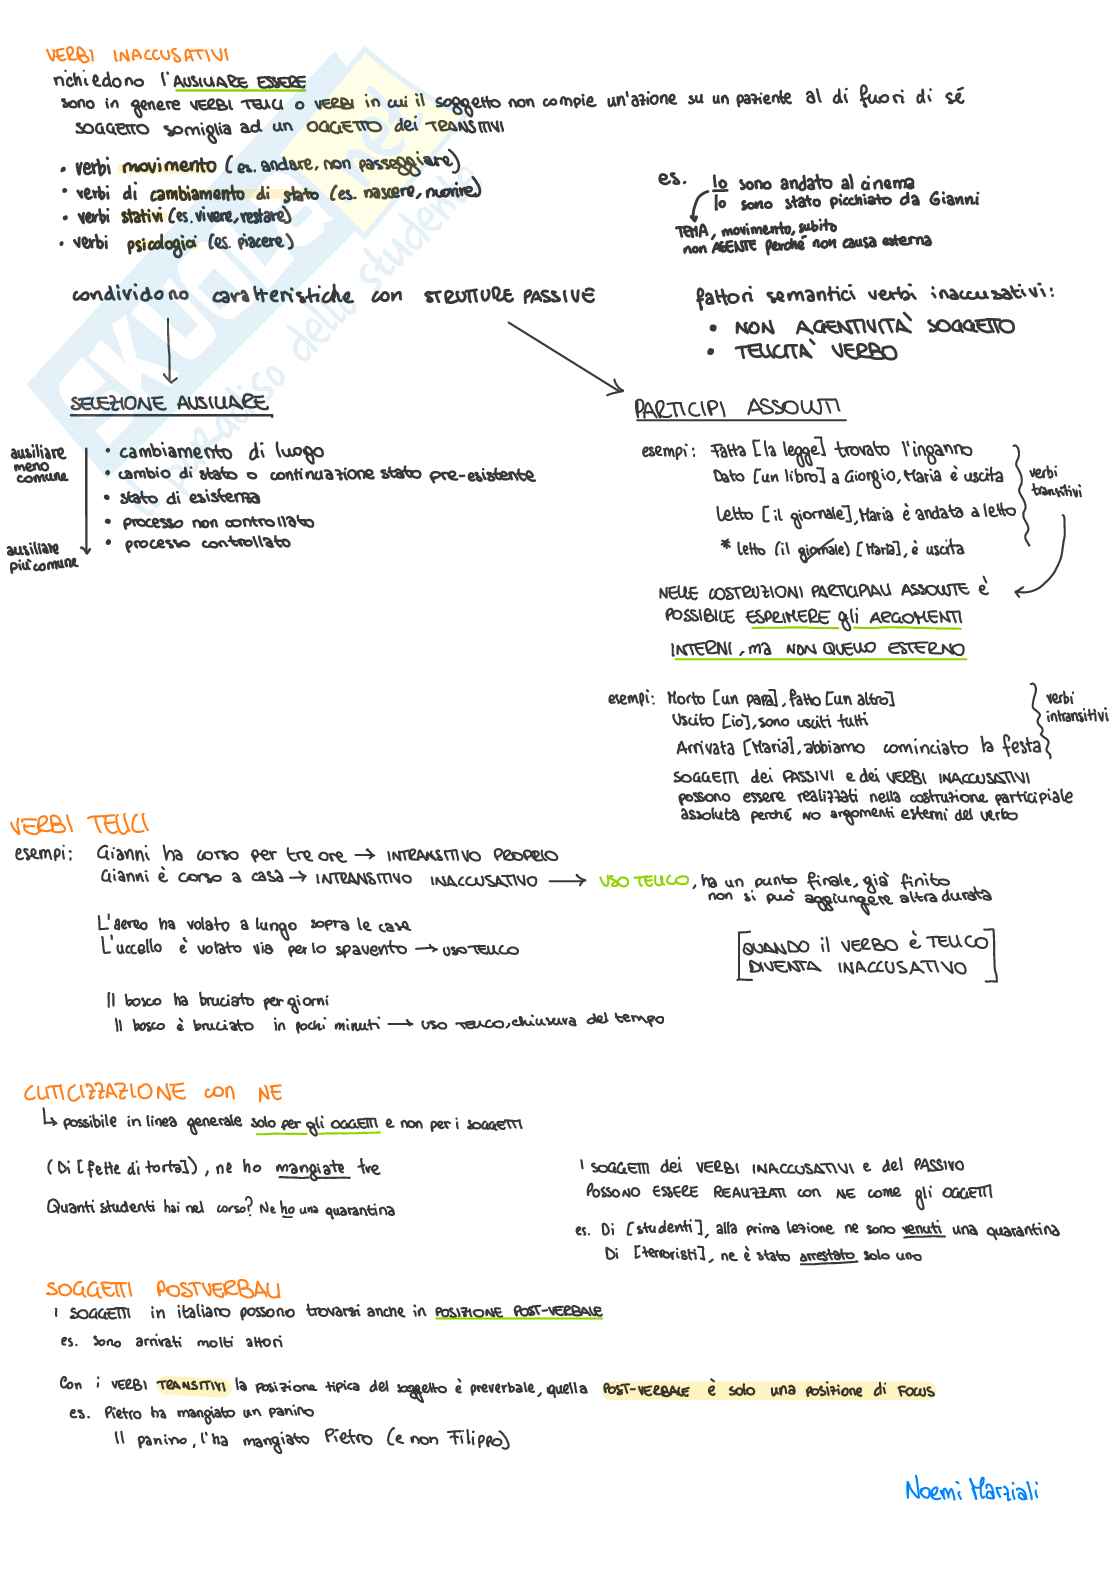 VERBI INACCUSATIVI
richiedono l'AUSILIARE ESSERE
sono in genere VERBI TELICI o VERBI in cui il soggetto non compie un'azione su un paziente al di fuori di sé
SOGGETTO somiglia ad un OGGETTO dei TRANSITIVI
• verbi movimento (es. andare, non passeggiare)
• verbi di cambiamento di stato (es. nascere, morire)
• verbi stativi (es. vivere, restare)
• verbi psicologici (es. piacere)
es. Io sono andato al cinema
Io sono stato picchiato da Gianni
TEMA, movimento, subito
non AGENTE perché non causa esterna
condividono caratteristiche con STRUTTURE PASSIVE
fattori semantici verbi inaccusativi:
• NON AGENTIVITÀ SOGGETTO
• TELICITÀ VERBO
SELEZIONE AUSILIARE
ausiliare meno comune
• cambiamento di luogo
• cambio di stato o continuazione stato pre-esistente
• stato di esistenza
• processo non controllato
• processo controllato
ausiliare più comune
PARTICIPI ASSOLUTI
esempi: Fatta [la legge] trovato l'inganno
Dato [un libro] a Giorgio, Maria è uscita
Letto [il giornale], Maria è andata a letto
* letto (il giornale) [Maria], è uscita
verbi transitivi
NELLE COSTRUZIONI PARTICIPIALI ASSOLUTE è
POSSIBILE ESPRIMERE gli ARGOMENTI
INTERNI, ma NON QUELLO ESTERNO
esempi: Morto [un papa], fatto [un altro]
Uscito [io], sono usciti tutti
Arrivata [Maria], abbiamo cominciato la festa
verbi intransitivi
SOGGETTI dei PASSIVI e dei VERBI INACCUSATIVI
possono essere realizzati nella costruzione participiale
assoluta perché no argomenti esterni del verbo
VERBI TELICI
esempi: Gianni ha corso per tre ore → INTRANSITIVO PROPRIO
Gianni è corso a casa → INTRANSITIVO INACCUSATIVO → USO TELICO, ha un punto finale, già finito
non si può aggiungere altra durata
L'aereo ha volato a lungo sopra le case
L'uccello è volato via per lo spavento → USO TELICO
[QUANDO il VERBO è TELICO
DIVENTA INACCUSATIVO]
Il bosco ha bruciato per giorni
Il bosco è bruciato in pochi minuti → USO TELICO, chiusura del tempo
CLITICIZZAZIONE con NE
↳ possibile in linea generale solo per gli OGGETTI e non per i SOGGETTI
(Di [fette di torta]), ne ho mangiate tre
Quanti studenti hai nel corso? Ne ho una quarantina
I SOGGETTI dei VERBI INACCUSATIVI e del PASSIVO
POSSONO ESSERE REALIZZATI con NE come gli OGGETTI
es. Di [studenti], alla prima lezione ne sono venuti una quarantina
Di [terroristi], ne è stato arrestato solo uno
SOGGETTI POSTVERBALI
I SOGGETTI in italiano possono trovarsi anche in POSIZIONE POST-VERBALE
es. sono arrivati molti attori
Con i VERBI TRANSITIVI la posizione tipica del soggetto è preverbale, quella POST-VERBALE è solo una posizione di FOCUS
es. Pietro ha mangiato un panino
Il panino, l'ha mangiato Pietro (e non Filippo)
Noemi Marziali
SKUOLA.net
il paradiso dello studente